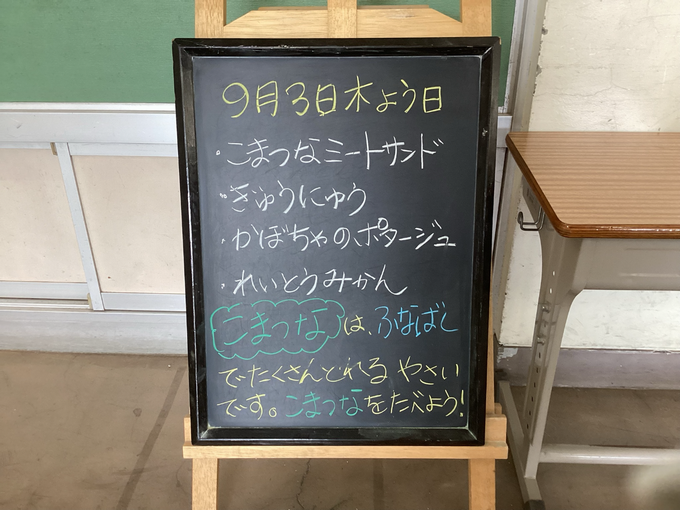 9月3日木よう日
・こまつなミートサンド
・ぎゅうにゅう
・かぼちゃのポタージュ
・れいとうみかん
こまつなは、ふなばし
でたくさんとれるやさい
です。こまつなをたべよう!